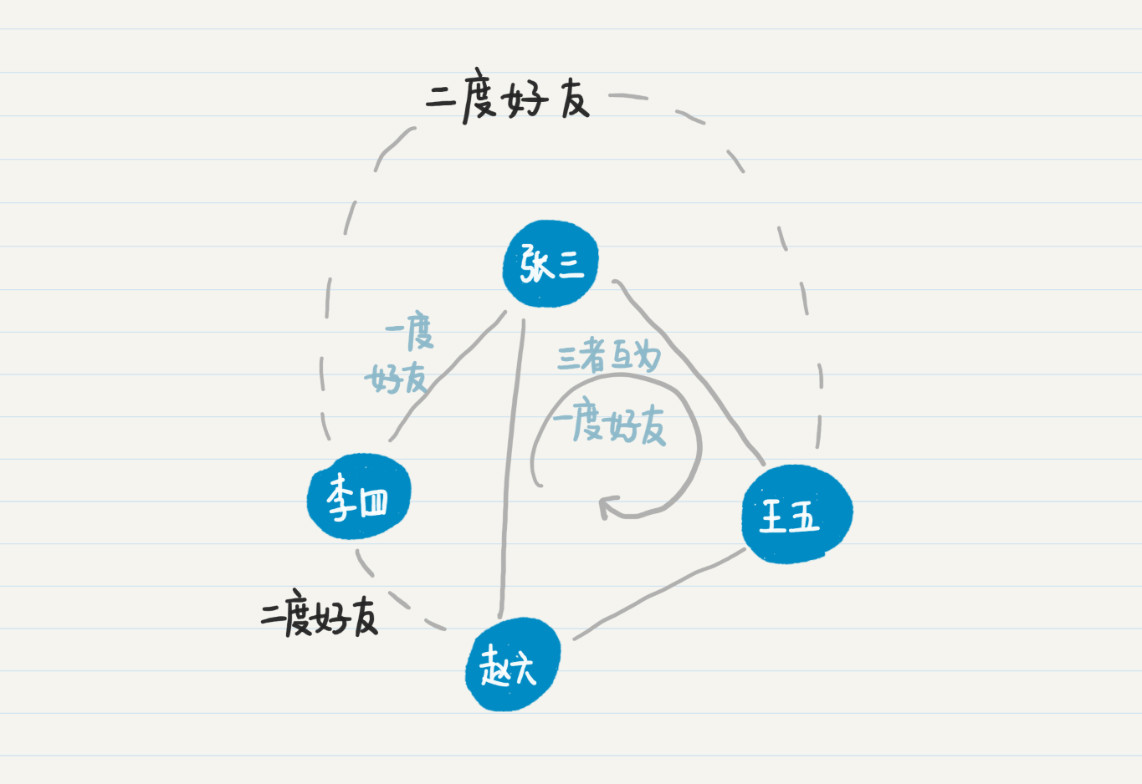 二度好友
张三
一度
好友
三者互为
一度好友
李四
王五
二度好友
赵六